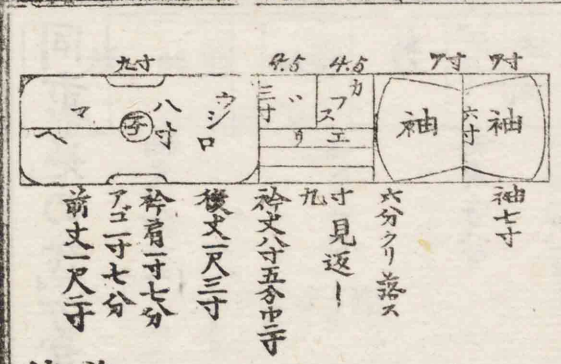 九寸
4.5
4.5
7寸
7寸
マヘ
子
八寸
ウシロ
三寸
カフス
エリ
袖
六寸
袖
袖七寸
六分クリ落ス
見返し
九寸
衿丈八寸五分巾二寸
後丈一尺三寸
衿肩一寸七分
アゴ一寸七分
前丈一尺二寸